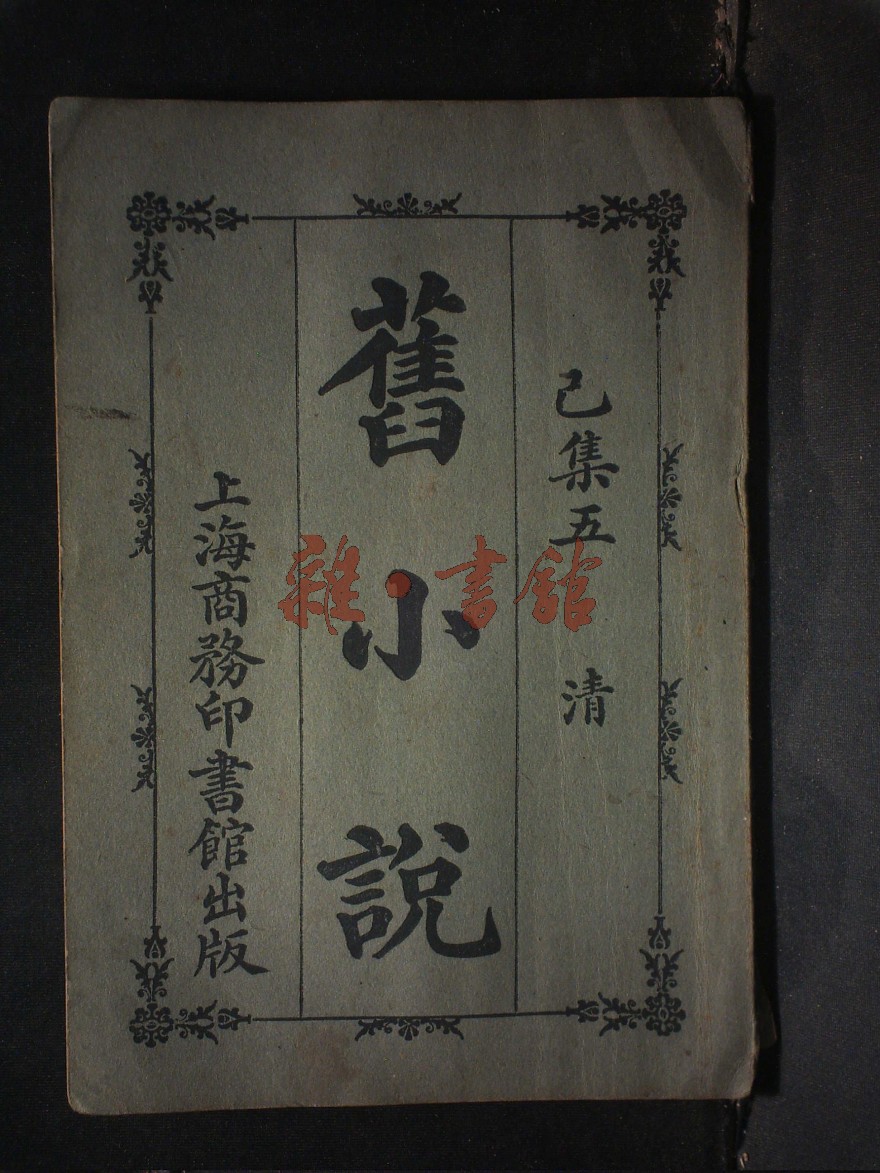 己集五 清
舊小說
上海商務印書館出版
雜·書館